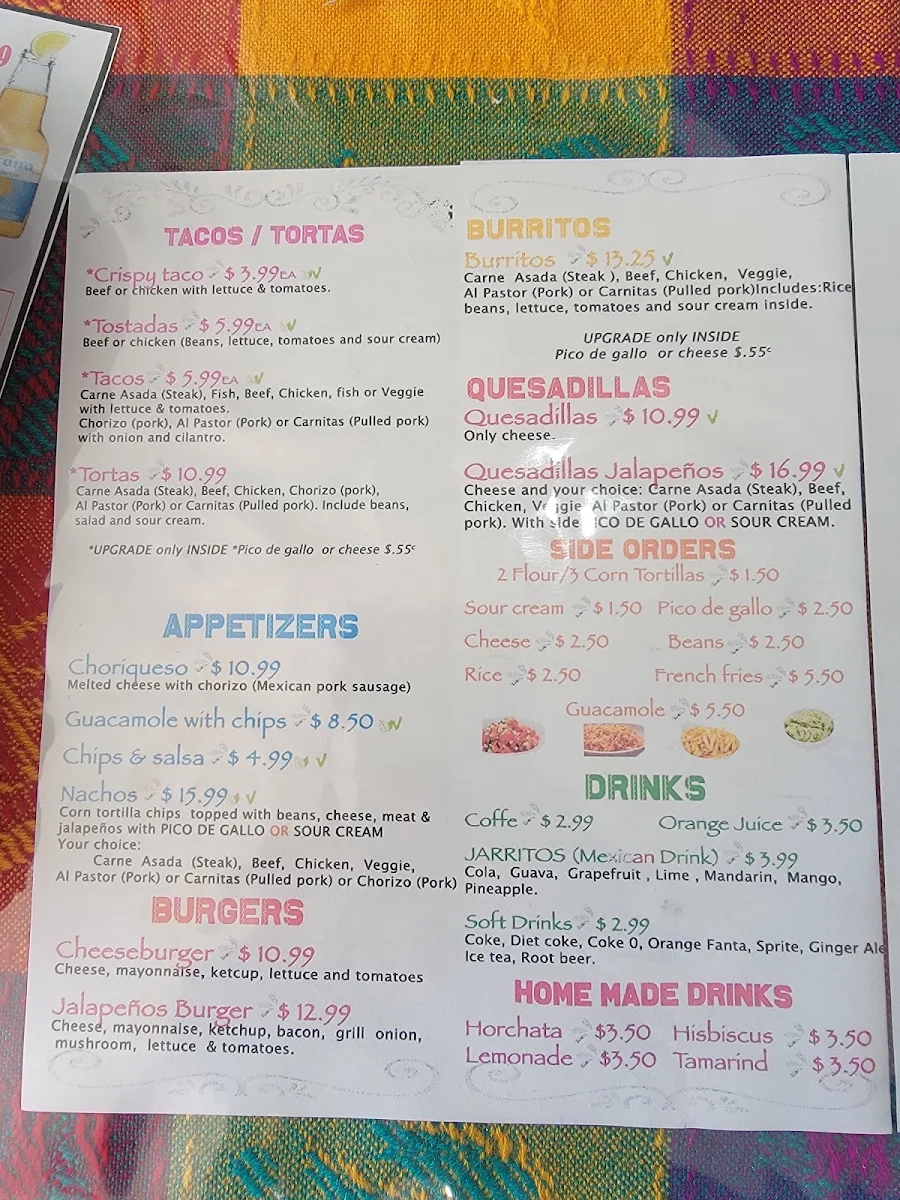 9
TACOS / TORTAS
*Crispy taco $ 3.99EA
Beef or chicken with lettuce & tomatoes.
*Tostadas $ 5.99EA
Beef or chicken (Beans, lettuce, tomatoes and sour cream)
*Tacos $ 5.99EA
Carne Asada (Steak), Fish, Beef, Chicken, fish or Veggie
with lettuce & tomatoes.
Chorizo (pork), Al Pastor (Pork) or Carnitas (Pulled pork)
with onion and cilantro.
*Tortas $ 10.99
Carne Asada (Steak), Beef, Chicken, Chorizo (pork),
Al Pastor (Pork) or Carnitas (Pulled pork). Include beans,
salad and sour cream.
*UPGRADE only INSIDE *Pico de gallo or cheese $.55¢
APPETIZERS
Choriqueso $ 10.99
Melted cheese with chorizo (Mexican pork sausage)
Guacamole with chips $ 8.50
Chips & salsa $ 4.99
Nachos $ 15.99
Corn tortilla chips topped with beans, cheese, meat &
jalapeños with PICO DE GALLO OR SOUR CREAM
Your choice:
Carne Asada (Steak), Beef, Chicken, Veggie,
Al Pastor (Pork) or Carnitas (Pulled pork) or Chorizo (Pork)
BURGERS
Cheeseburger $ 10.99
Cheese, mayonnaise, ketcup, lettuce and tomatoes
Jalapeños Burger $ 12.99
Cheese, mayonnaise, ketchup, bacon, grill onion,
mushroom, lettuce & tomatoes.
BURRITOS
Burritos $ 13.25
Carne Asada (Steak ), Beef, Chicken, Veggie,
Al Pastor (Pork) or Carnitas (Pulled pork)Includes:Rice
beans, lettuce, tomatoes and sour cream inside.
UPGRADE only INSIDE
Pico de gallo or cheese $.55¢
QUESADILLAS
Quesadillas $ 10.99
Only cheese.
Quesadillas Jalapeños $ 16.99
Cheese and your choice: Carne Asada (Steak), Beef,
Chicken, Veggie, Al Pastor (Pork) or Carnitas (Pulled
pork). With side PICO DE GALLO OR SOUR CREAM.
SIDE ORDERS
2 Flour/3 Corn Tortillas $ 1.50
Sour cream $ 1.50 Pico de gallo $ 2.50
Cheese $ 2.50 Beans $ 2.50
Rice $ 2.50 French fries $ 5.50
Guacamole $ 5.50
DRINKS
Coffe $ 2.99 Orange Juice $ 3.50
JARRITOS (Mexican Drink) $ 3.99
Cola, Guava, Grapefruit , Lime , Mandarin, Mango,
Pineapple.
Soft Drinks $ 2.99
Coke, Diet coke, Coke 0, Orange Fanta, Sprite, Ginger Ale
Ice tea, Root beer.
HOME MADE DRINKS
Horchata $3.50 Hisbiscus $ 3.50
Lemonade $3.50 Tamarind $ 3.50